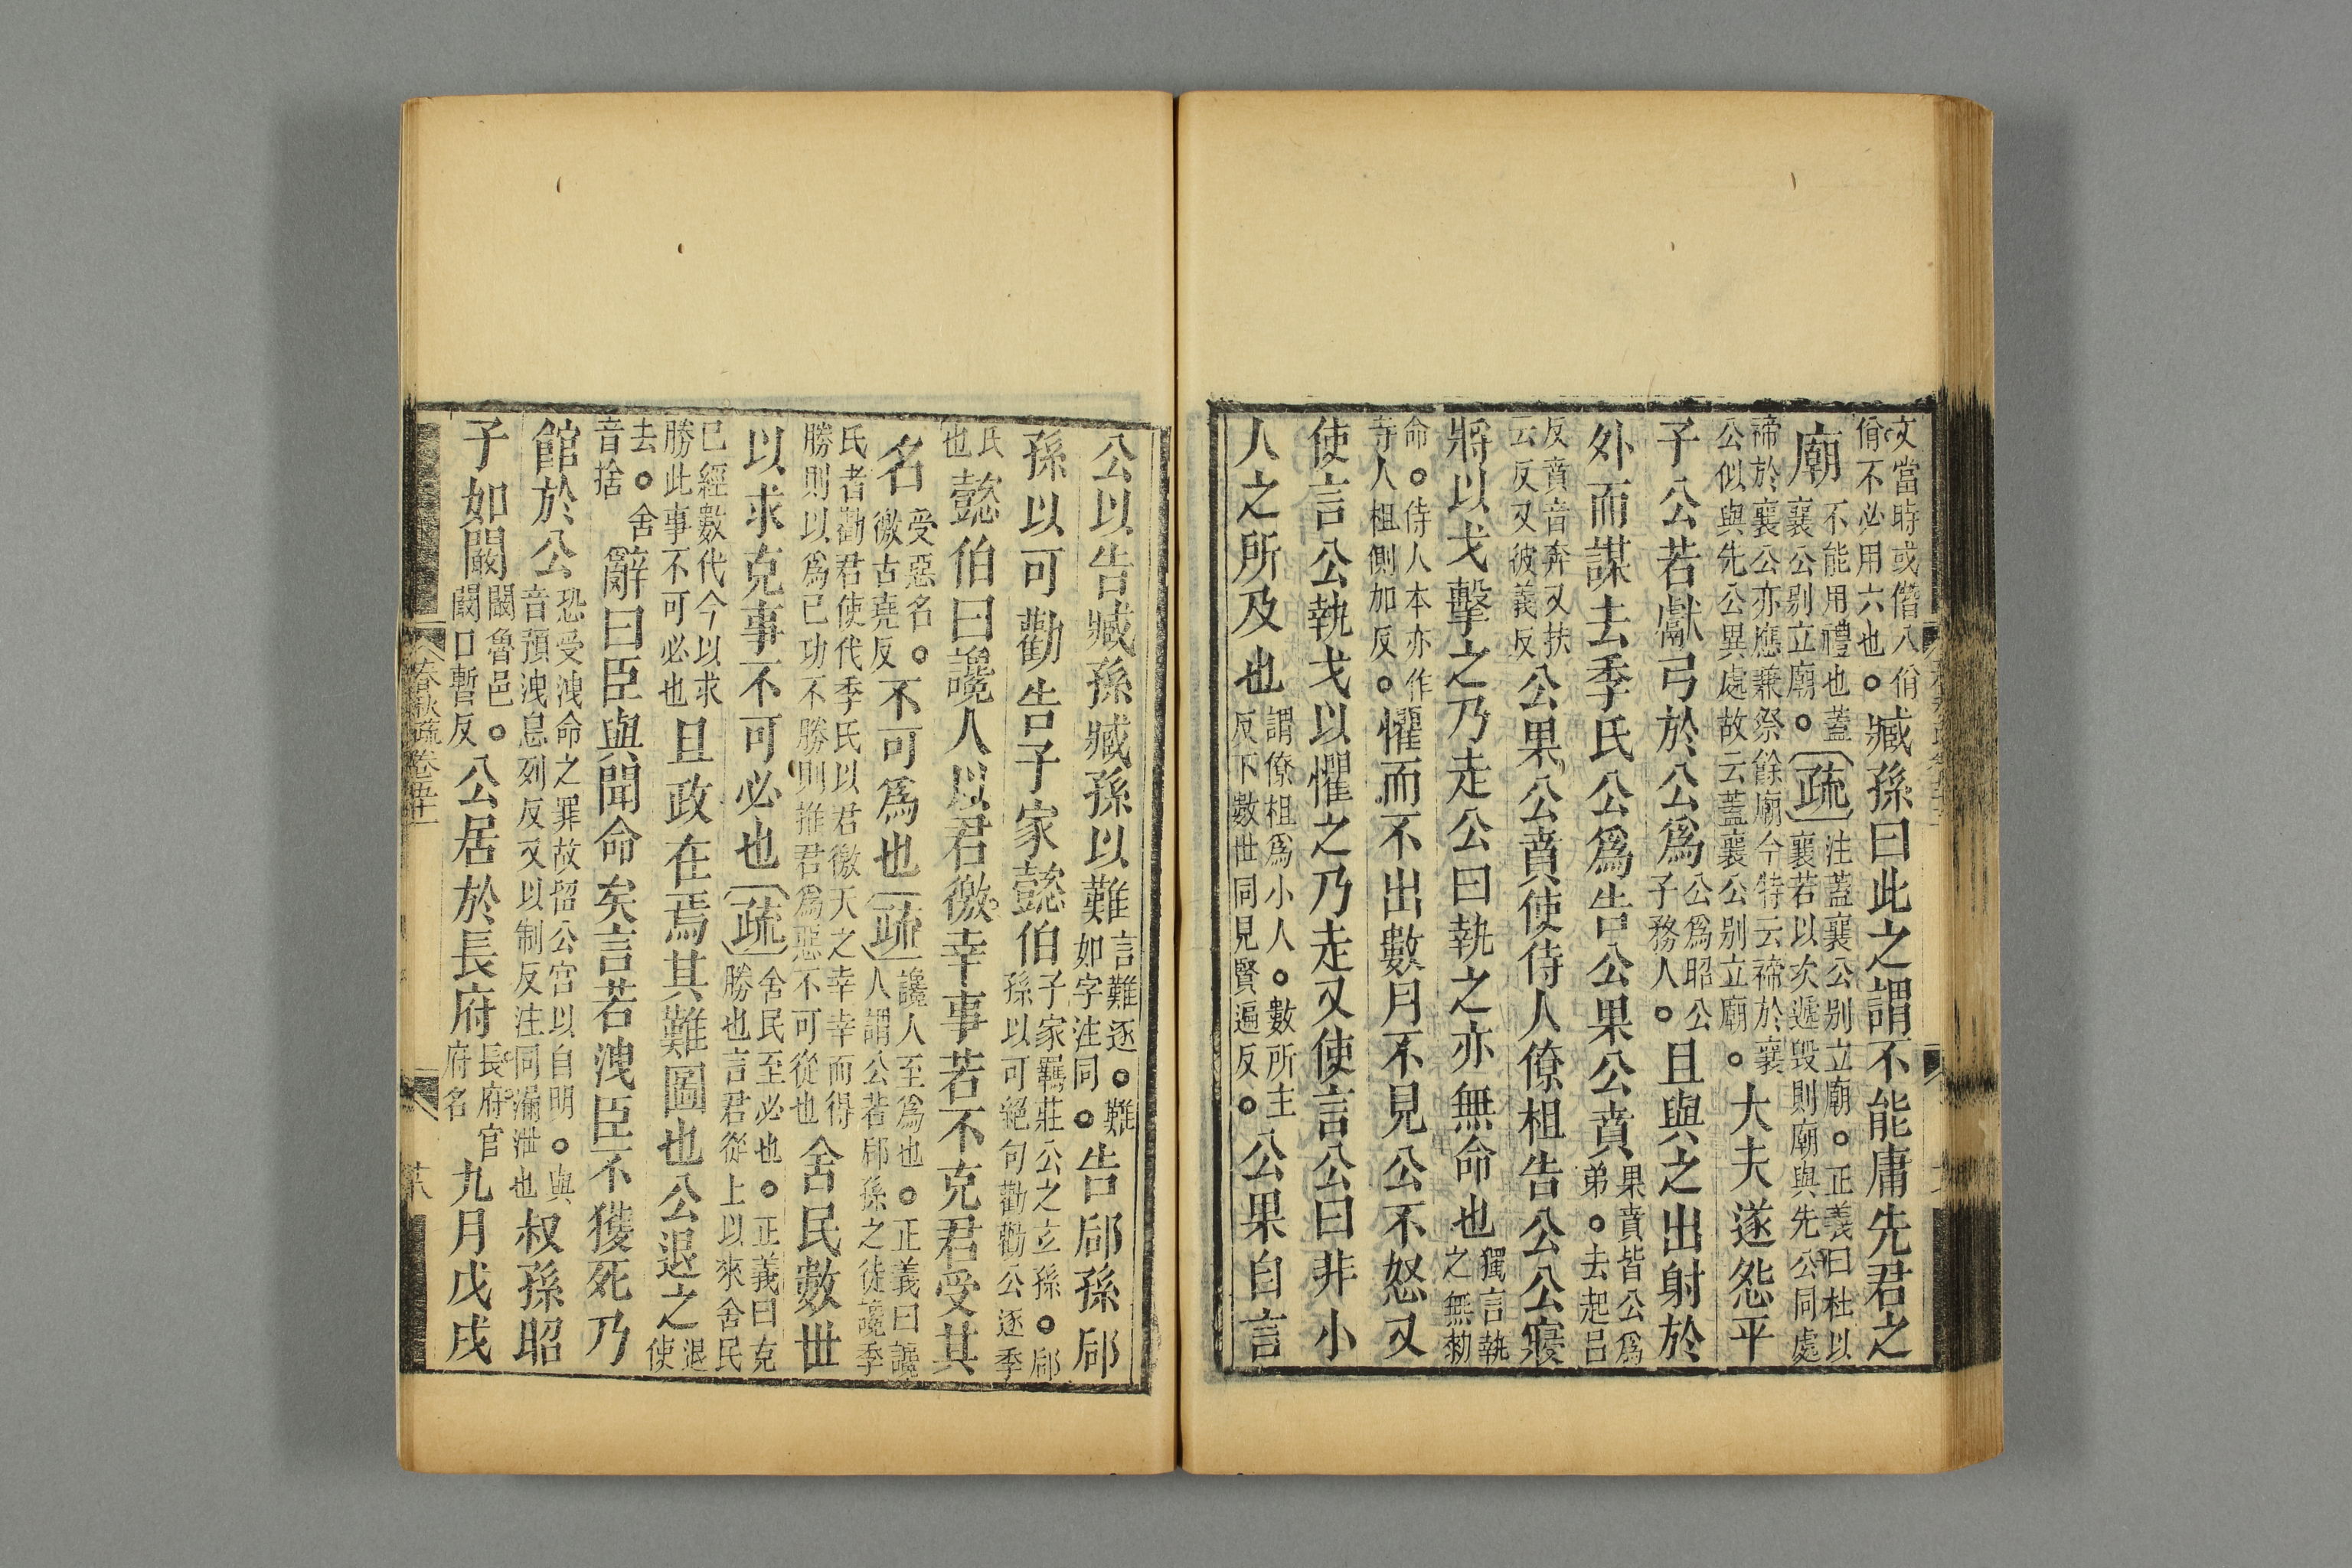 文當時或僭八佾
佾不必用六也○臧孫曰此之謂不能庸先君之
廟不能用禮也蓋
襄公别立廟○疏注蓋襄公别立廟○正義曰杜以
襄若以次遞毁則廟與先公同處
禘於襄公亦應兼祭餘廟今特云禘於襄
公似與先公異處故云蓋襄公别立廟○大夫遂怨平
子公若獻弓於公爲公爲昭公
子務人○且與之出射於
外而謀去季氏公爲告公果公賁果賁皆公爲
弟○去起呂
反賁音奔又扶
云反又彼義反公果公賁使侍人僚柤告公公寢
將以戈擊之乃走公曰執之亦無命也獨言執
之無勑
命○侍人本亦作
寺人柤側加反○懼而不出數月不見公不怒又
使言公執戈以懼之乃走又使言公曰非小
人之所及也謂僚柤爲小人○數所主
反下數世同見賢遍反○公果自言
公以告臧孫臧孫以難言難逐○難
如字注同○告郈孫郈
孫以可勸告子家懿伯子家羈莊公之玄孫○郈
孫以可絕句勸勸公逐季
氏
也懿伯曰讒人以君徼幸事若不克君受其
名受惡名○
徼古堯反不可爲也疏讒人至爲也○正義曰讒
人謂公若郈孫之徒讒季
氏者勸君使代季氏以君徼天之幸幸而得
勝則以爲已功不勝則推君爲惡不可從也舍民數世
以求克事不可必也疏舍民至必也○正義曰克
勝也言君從上以來舍民
已經數代今以求
勝此事不可必也且政在焉其難圖也公退之退
使
去○舍
音捨辭曰臣與聞命矣言若洩臣不獲死乃
館於公恐受洩命之罪故留公宮以自明○與
音預洩息列反又以制反注同漏泄也叔孫昭
子如闞闞魯邑○
闞口暫反公居於長府長府官
府名九月戊戌
春秋疏卷五十一